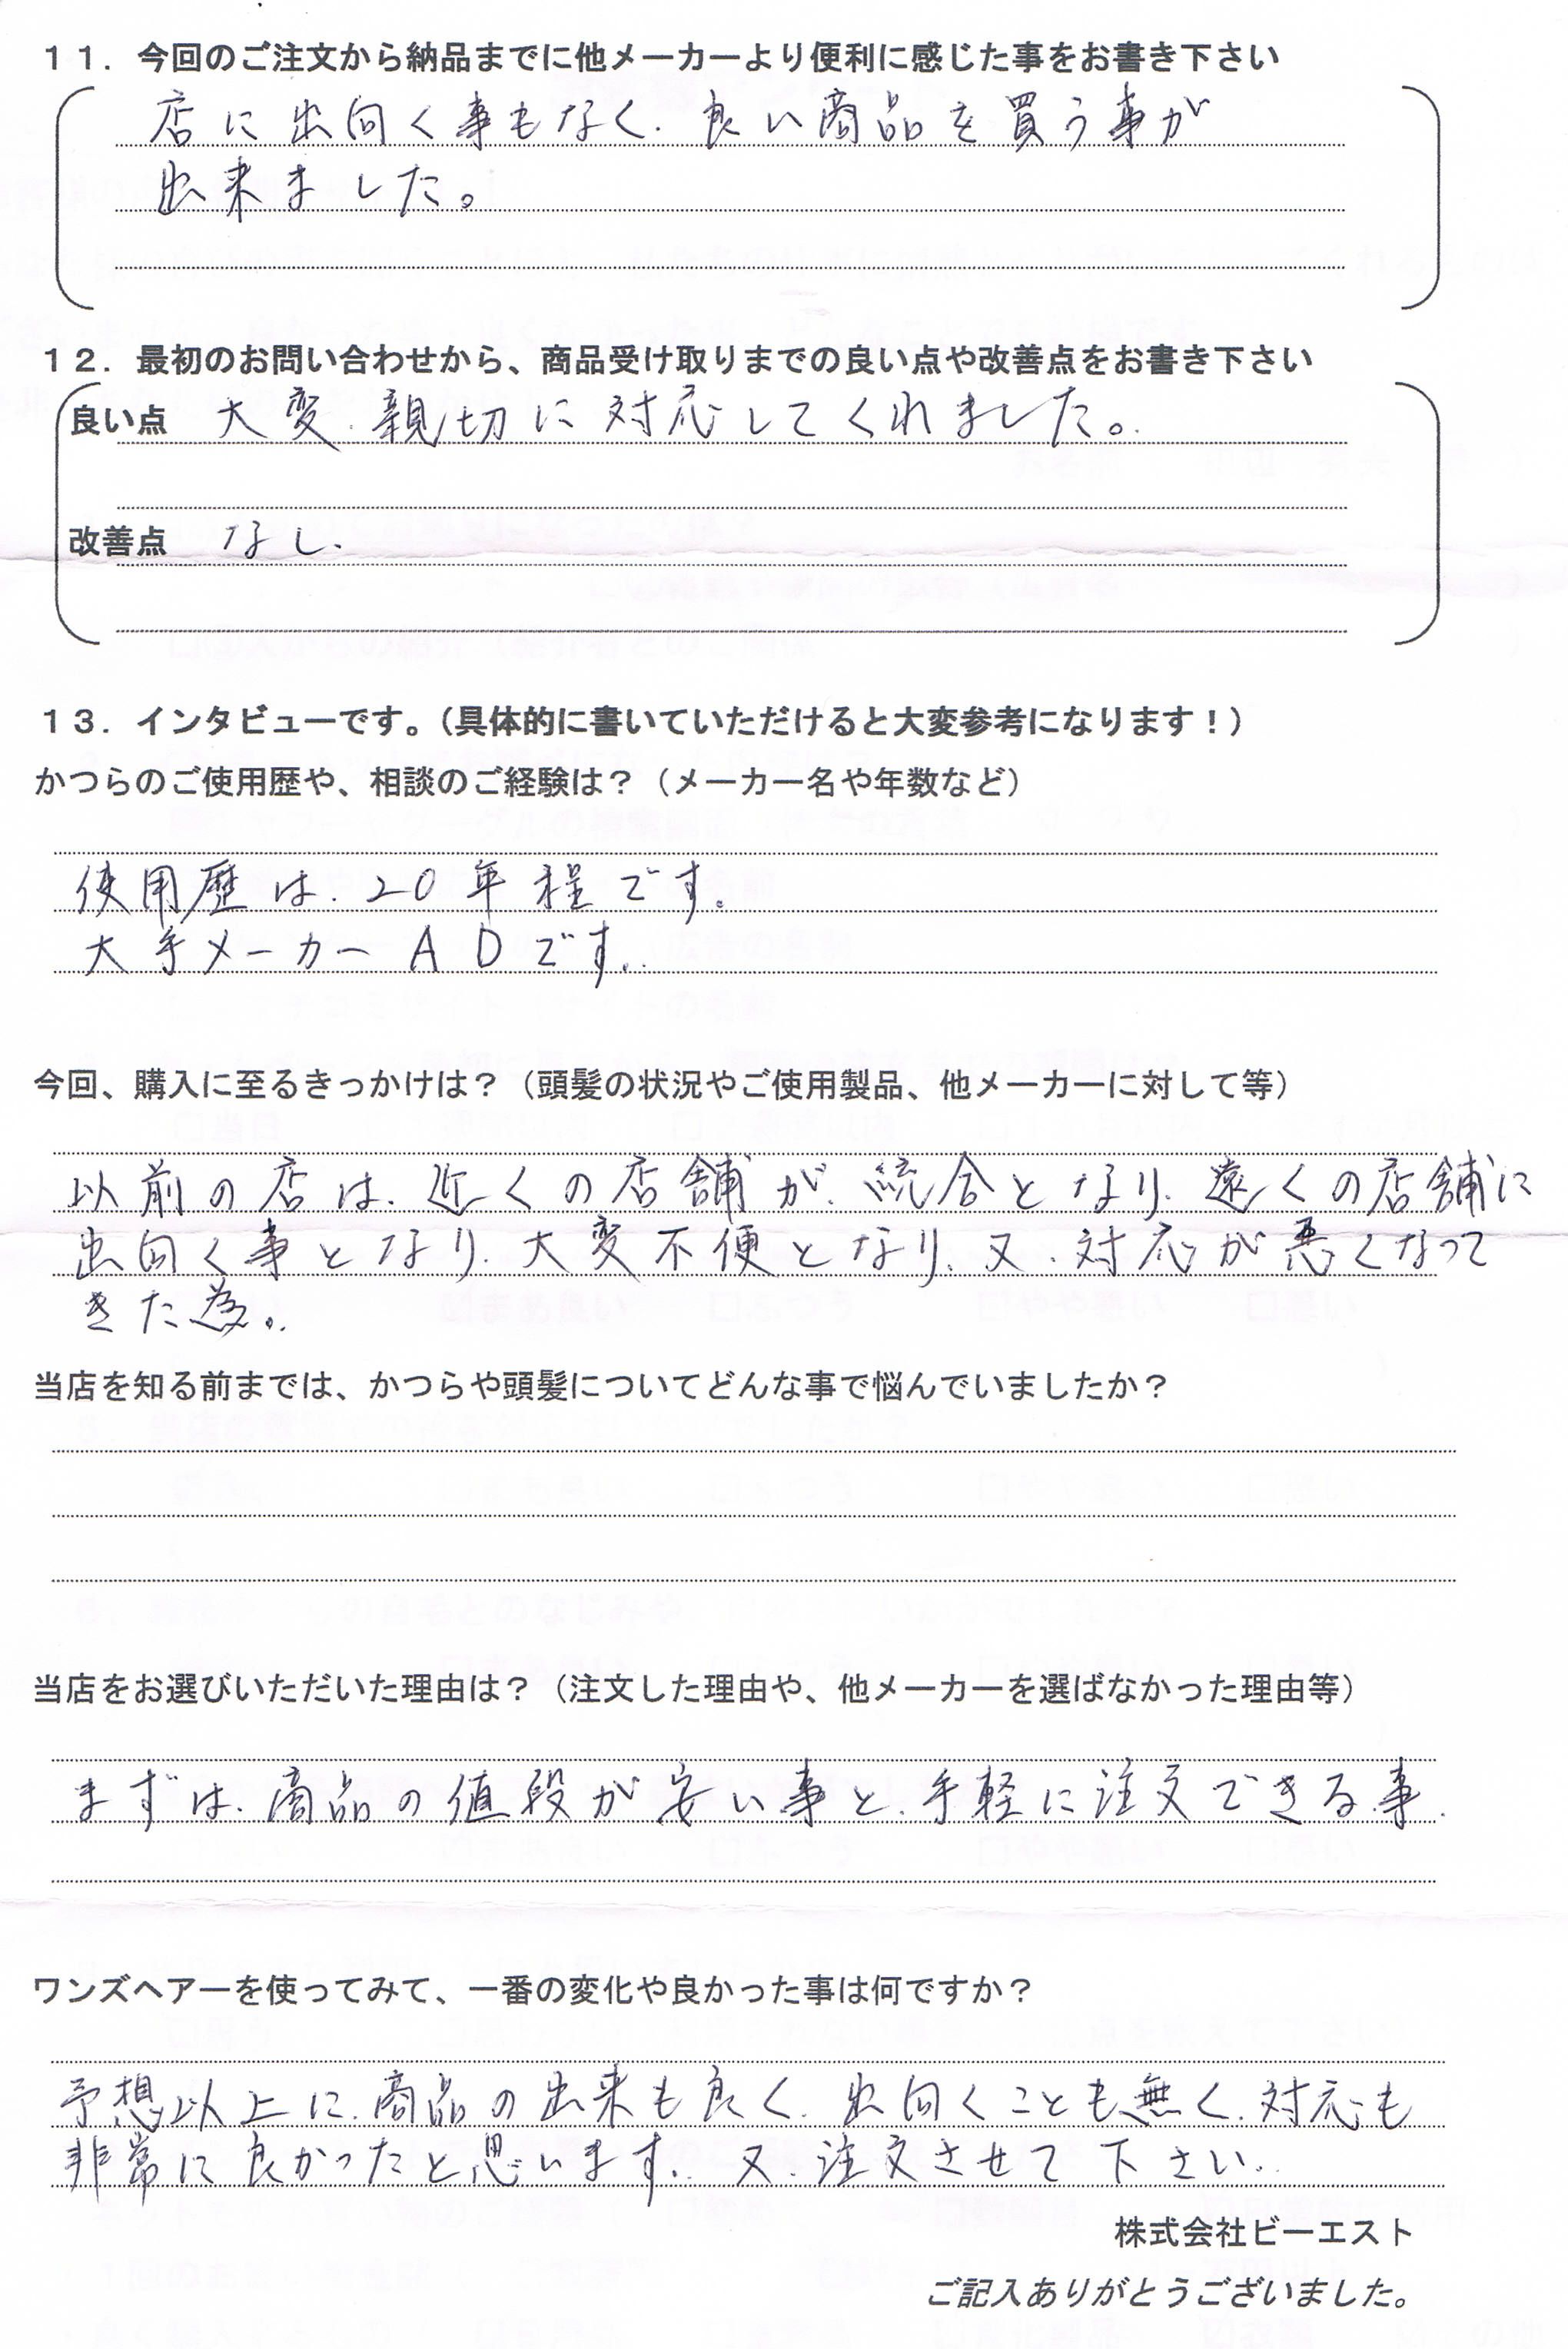 11．今回のご注文から納品までに他メーカーより便利に感じた事をお書き下さい
店に出向く事もなく、良い商品を買う事が
出来ました。
12．最初のお問い合わせから、商品受け取りまでの良い点や改善点をお書き下さい
良い点 大変、親切に対応してくれました。
改善点 なし、
13．インタビューです。（具体的に書いていただけると大変参考になります！）
かつらのご使用歴や、相談のご経験は？（メーカー名や年数など）
使用歴は、20年程です。
大手メーカーADです。
今回、購入に至るきっかけは？（頭髪の状況やご使用製品、他メーカーに対して等）
以前の店は、近くの店舗が、統合となり、遠くの店舗に
出向く事となり、大変不便となり、又、対応が悪くなって
きた為。
当店を知る前までは、かつらや頭髪についてどんな事で悩んでいましたか？
当店をお選びいただいた理由は？（注文した理由や、他メーカーを選ばなかった理由等）
まずは、商品の値段が安い事と、手軽に注文できる事、
ワンズヘアーを使ってみて、一番の変化や良かった事は何ですか？
予想以上に、商品の出来も良く、出向くことも無く、対応も
非常に良かったと思います。又、注文させて下さい。
株式会社ビーエスト
ご記入ありがとうございました。